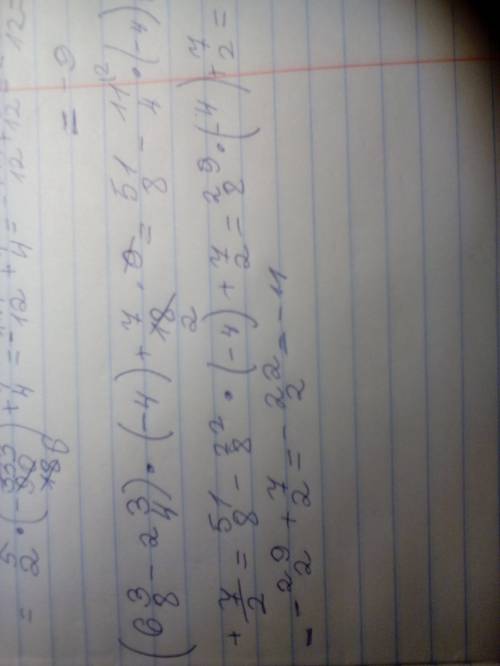 = 5/2 · (- 33/18) + 1/4 = -12 + 1/4 = 12 + 12 = 12 =
= -9
(6 3/8 - 2 3/4) · (-4) + 7/18 · 9 = 51/8 - 11/4 ² · (-4)
+ 7/2 = 51/8 - 22/8 · (-4) + 7/2 = 29/8 · (-4) + 7/2 =
= - 29/2 + 7/2 = - 22/2 = -11